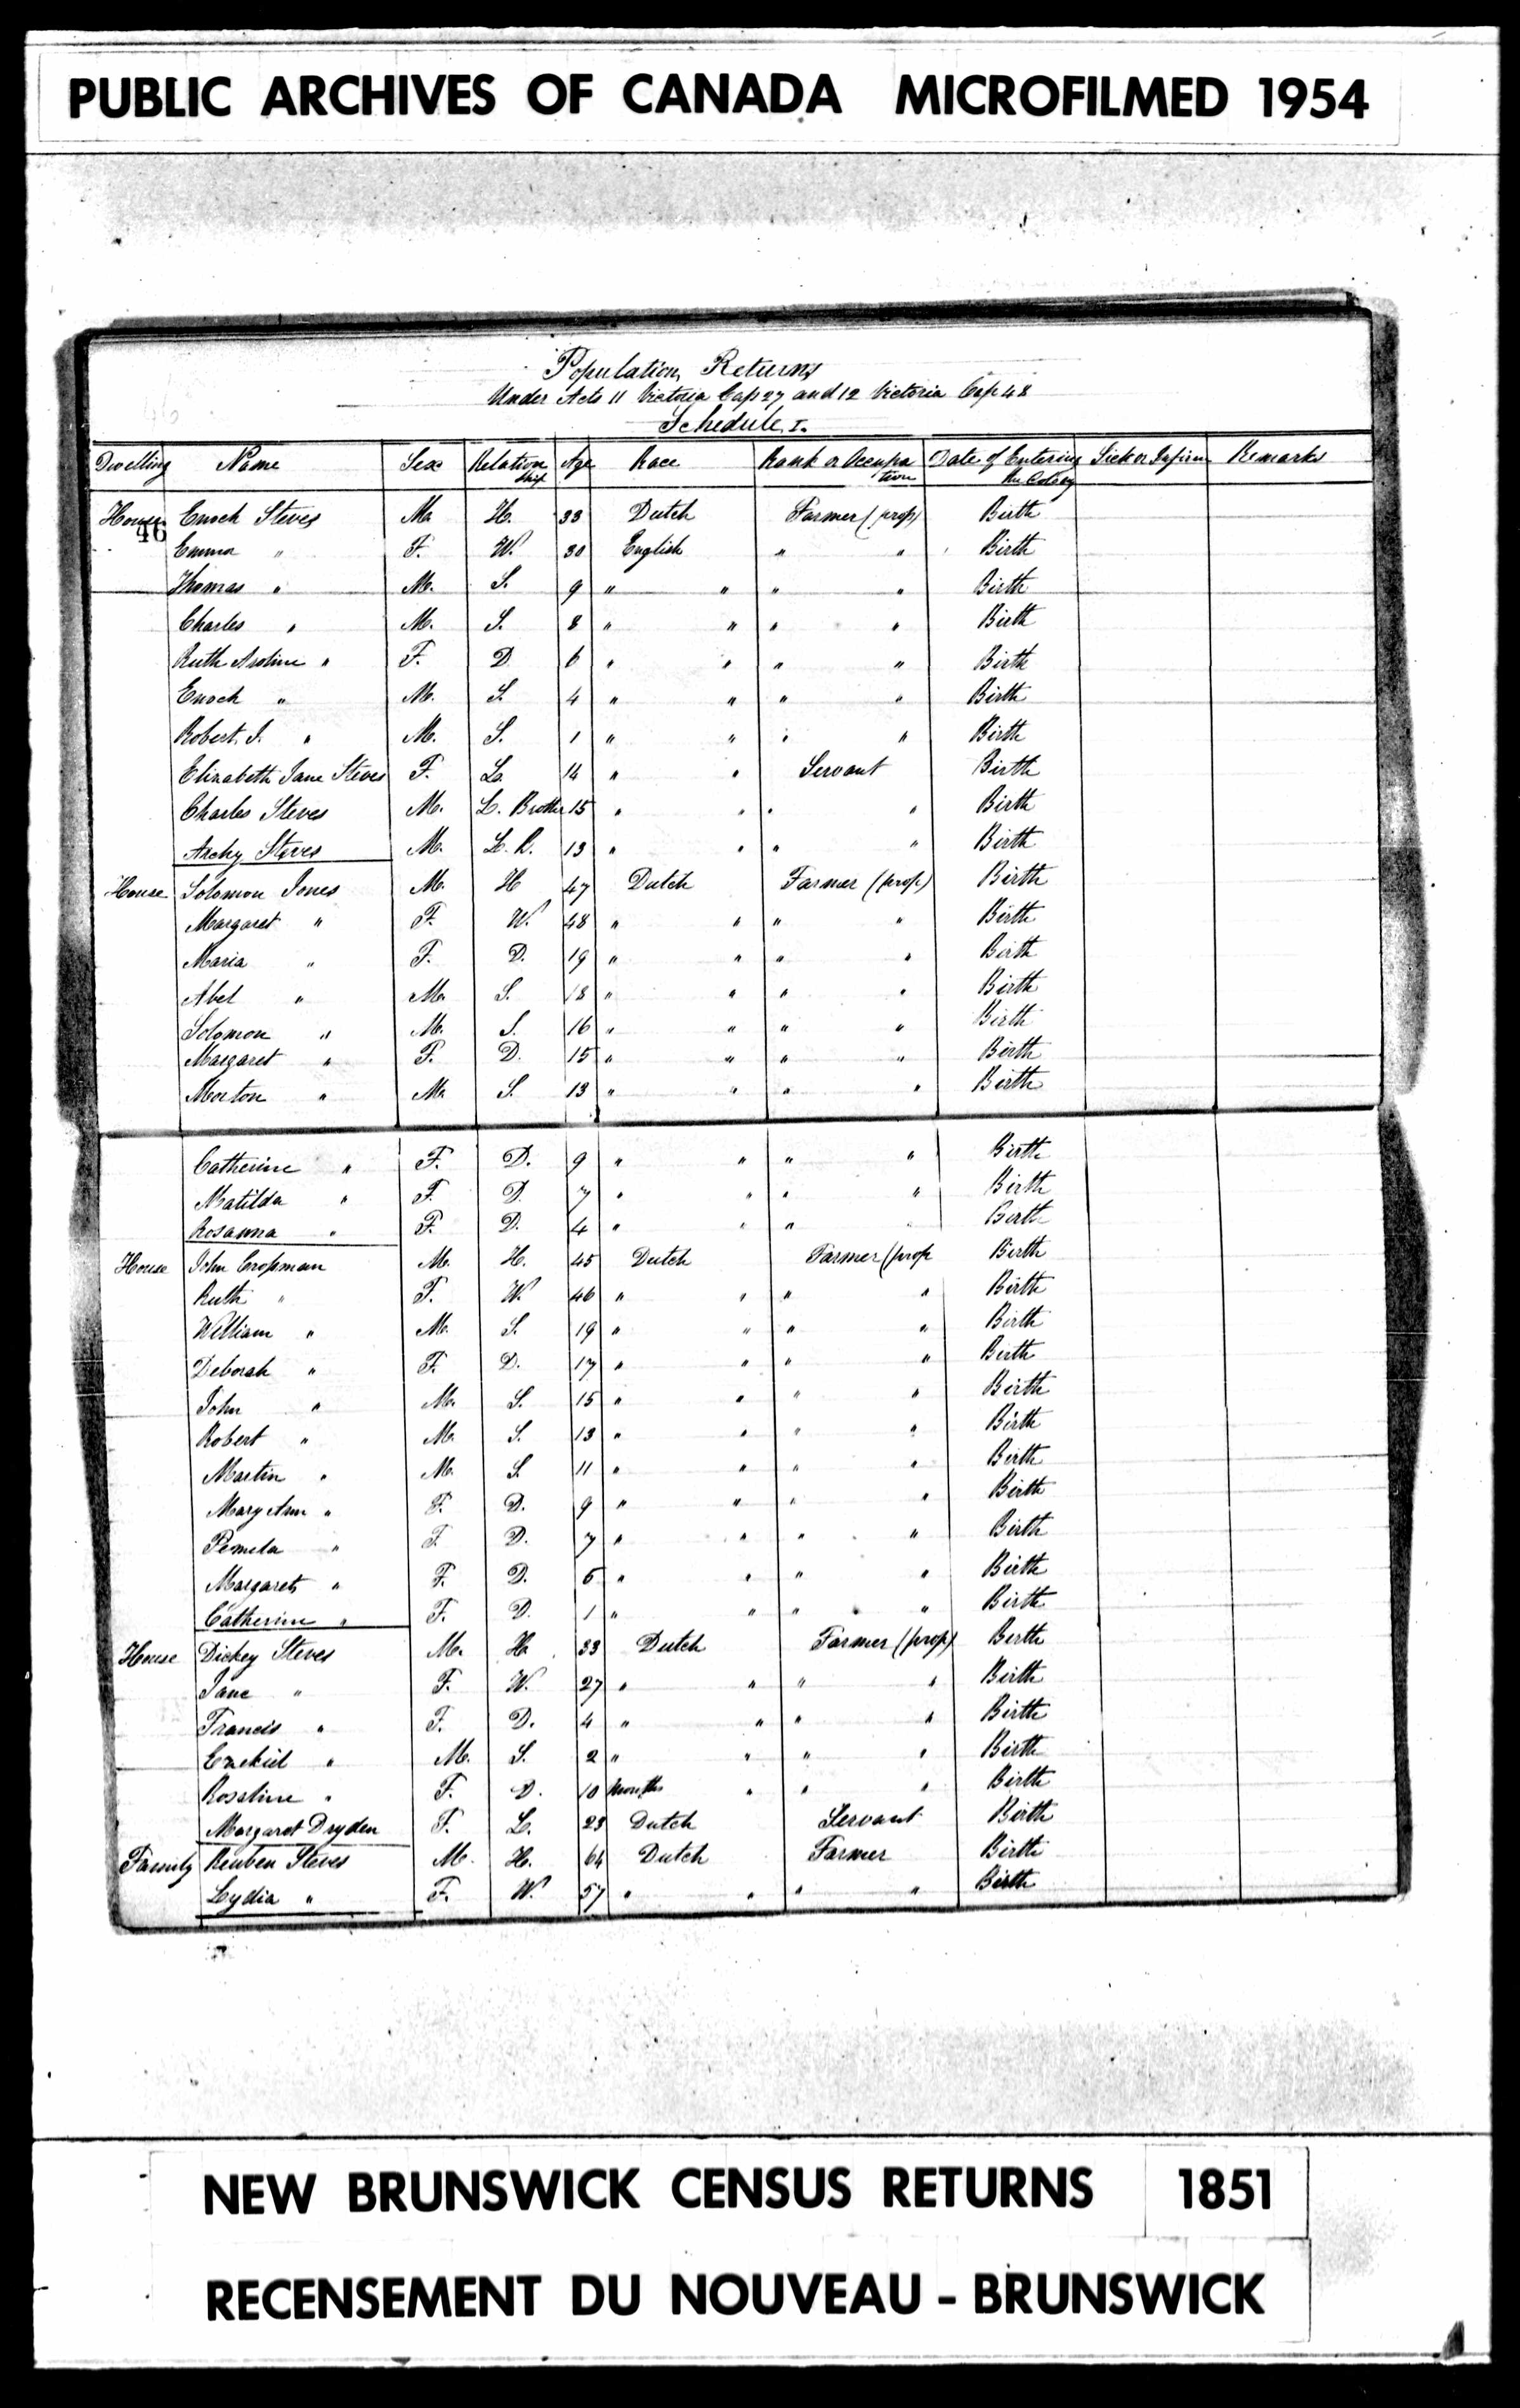 PUBLIC ARCHIVES OF CANADA MICROFILMED 1954
Population Returns
Under Acts 11 Victoria Cap 27 and 12 Victoria Cap 48
Schedule 1.
Dwelling Name Sex Relation ship Age Race Rank or Occupa tion Date of Entering the Colony Sick or Infirm Remarks
House Enoch Steves M. H. 33 Dutch Farmer (prop) Birth
46
Emma " F. W. 30 English " " Birth
Thomas " M. S. 9 " " " " Birth
Charles " M. S. 8 " " " " Birth
Ruth " F. D 6 " " " " Birth
Enoch " M. S. 4 " " " " Birth
Robert J. " M. S. 1 " " " " Birth
Elizabeth Jane Steves F. L. 14 " " Servant Birth
Charles Steves M. L. Brother 15 " " " " Birth
Archy Steves M. L. 13 " " " " Birth
House Solomon Jones M. H 47 Dutch Farmer (prop) Birth
Margaret " F. W. 48 " " " " Birth
Maria " F. D. 19 " " " " Birth
Abel " M. S. 18 " " " " Birth
Solomon " M. S. 16 " " " " Birth
Margaret " F. D. 15 " " " " Birth
Morton " M. S. 13 " " " " Birth
Catherine " F. D. 9 " " " " Birth
Matilda " F. D. 7 " " " " Birth
Rosanna " F. D. 4 " " " " Birth
House John Crossman M. H. 45 Dutch Farmer (prop Birth
Ruth " F. W. 46 " " " " Birth
William " M. S. 19 " " " " Birth
Deborah " F. D. 17 " " " " Birth
John " M. S. 15 " " " " Birth
Robert " M. S. 13 " " " " Birth
Martin " M. S. 11 " " " " Birth
Mary Ann " F. D. 9 " " " " Birth
Pemela " F. D. 7 " " " " Birth
Margaret " F. D. 5 " " " " Birth
Catherine " F. D. 1 " " " " Birth
House Dickey Steves M. H. 33 Dutch Farmer (prop) Birth
Jane " F. W. 27 " " " " Birth
Francis " F. D. 4 " " " " Birth
Ezekiel " M. S. 2 " " " " Birth
Roseline " F. D. 10 Months " " " Birth
Margaret Dryden F. L. 23 Dutch Servant Birth
Family Reuben Steves M. H. 64 Dutch Farmer Birth
Lydia " F. W. 57 " " " " Birth
NEW BRUNSWICK CENSUS RETURNS 1851
RECENSEMENT DU NOUVEAU - BRUNSWICK